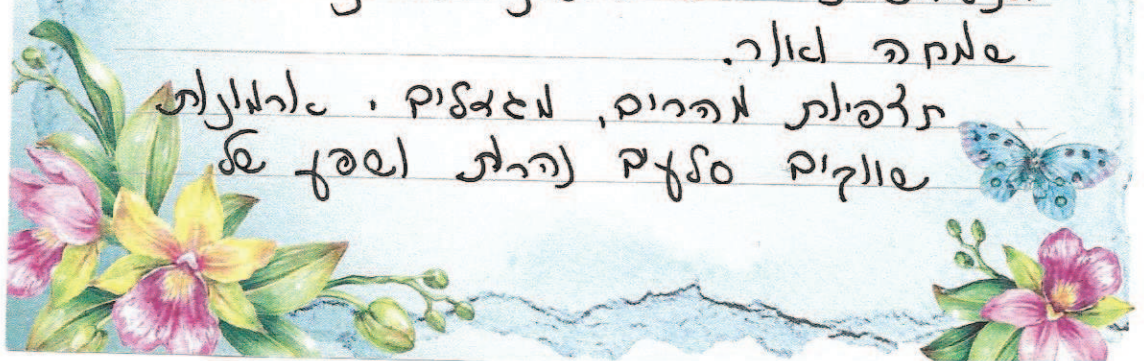 שמחה ואור.
תצפיות מהרים, מגדלים, ארמונות
שווקים סלעים נהרות ושפע של